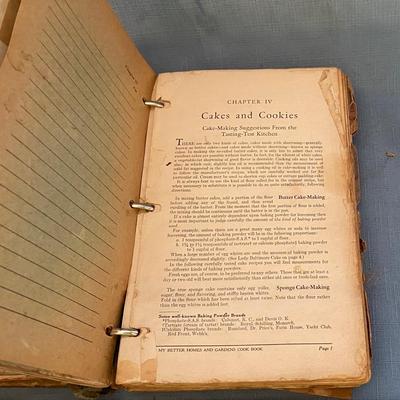 CHAPTER IV
Cakes and Cookies
Cake-Making Suggestions From the
Tasting-Test Kitchen
THERE are only two kinds of cakes, cakes made with shortening—generally
known as butter cakes—and cakes made without shortening—known as
sponge cakes. In making the so-called butter cakes it is only fair to admit that very
excellent cakes are possible without butter. In fact, for the whitest of white cakes,
a vegetable shortening of good flavor is desirable. Cooking oils may be used
also, in which case slightly less oil is recommended than the measurement of
solid fat suggested in the recipe. In using a cooking oil in cake-making it is well
to follow the manufacturer's recipes, which are carefully worked out for his
particular oil. Cream may be used to shorten cup cakes or cottage pudding cake.
It is always best to use the kind of flour called for in the current recipe, but
when necessary to substitute it is possible to do so quite satisfactorily, following
directions.
In mixing butter cakes, add a portion of the flour
Butter Cake-Making
before adding any of the liquid, and thus avoid
curdling of the batter. From the moment that the first portion of flour is added,
the mixing should be continuous until the batter is in the pan.
If a cake is almost entirely dependent upon baking powder for leavening then
it is most important to judge carefully the amount of the kind of baking powder
used.
For example, unless there are a great many egg whites or soda to increase
leavening, the amount of baking powder will be in the following proportions:
1 teaspoonful of phosphate-S.A.S* to 1 cupful of flour.
teaspoonfuls of tartrate† or calcium phosphate‡ baking powder
to 1 cupful of flour.
When a large number of egg whites are used the amount of baking powder is
accordingly decreased slightly. (See Lady Baltimore Cake on page 4.)
In the following carefully tested cake recipes you will find measurements for
the different kinds of baking powders.
Fresh eggs are, of course, to be preferred to any others. Those that are at least a
day or two old will beat more satisfactorily than either old ones or fresh-laid ones.
The true sponge cake contains only egg yolks,
Sponge Cake-Making
sugar, flour, and flavoring, and stiffly beaten whites.
Fold in the flour which has been sifted at least twice. Note that the flour rather
than the egg whites is added last.
Some well-known Baking Powder Brands
*Phosphate-S.A.S. brands: Calumet, K. C., and Davis O. K.
†Tartrate (cream of tartar) brands: Royal, Schilling, Monarch.
‡Calcium Phosphate brands: Rumford, Dr. Price's, Farm House, Yacht Club,
Red Front, Webb's.
MY BETTER HOMES AND GARDENS COOK BOOK
Page 1